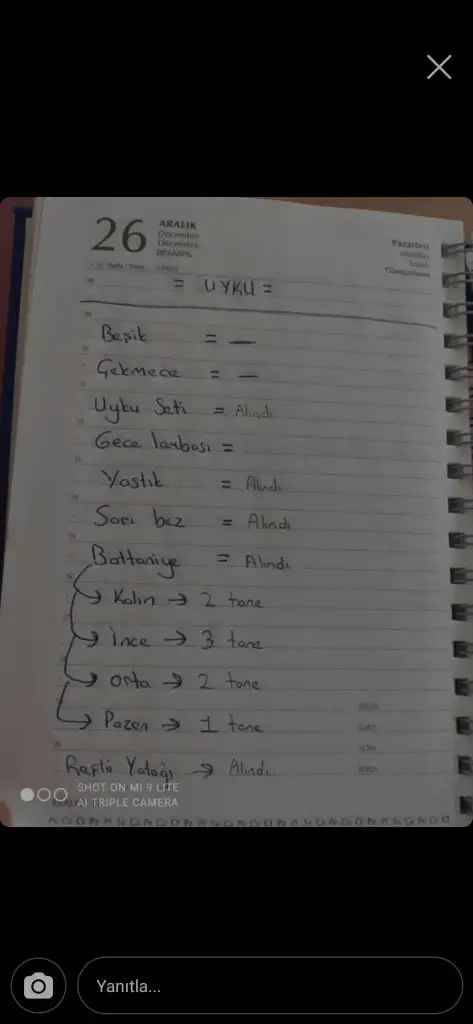 26
ARALIK
December
Décembre
ДЕКАБРЬ
Pazartesi
= UYKU =
Beşik = —
Çekmece = —
Uyku Seti = Alındı
Gece lambası =
Yastık = Alındı
Sarı bez = Alındı
Battaniye = Alındı
Kalın → 2 tane
İnce → 3 tane
Orta → 2 tane
Pazen → 1 tane
Reflü Yatağı → Alındı
SHOT ON MI 9 LITE
AI TRIPLE CAMERA
Yanıtla...